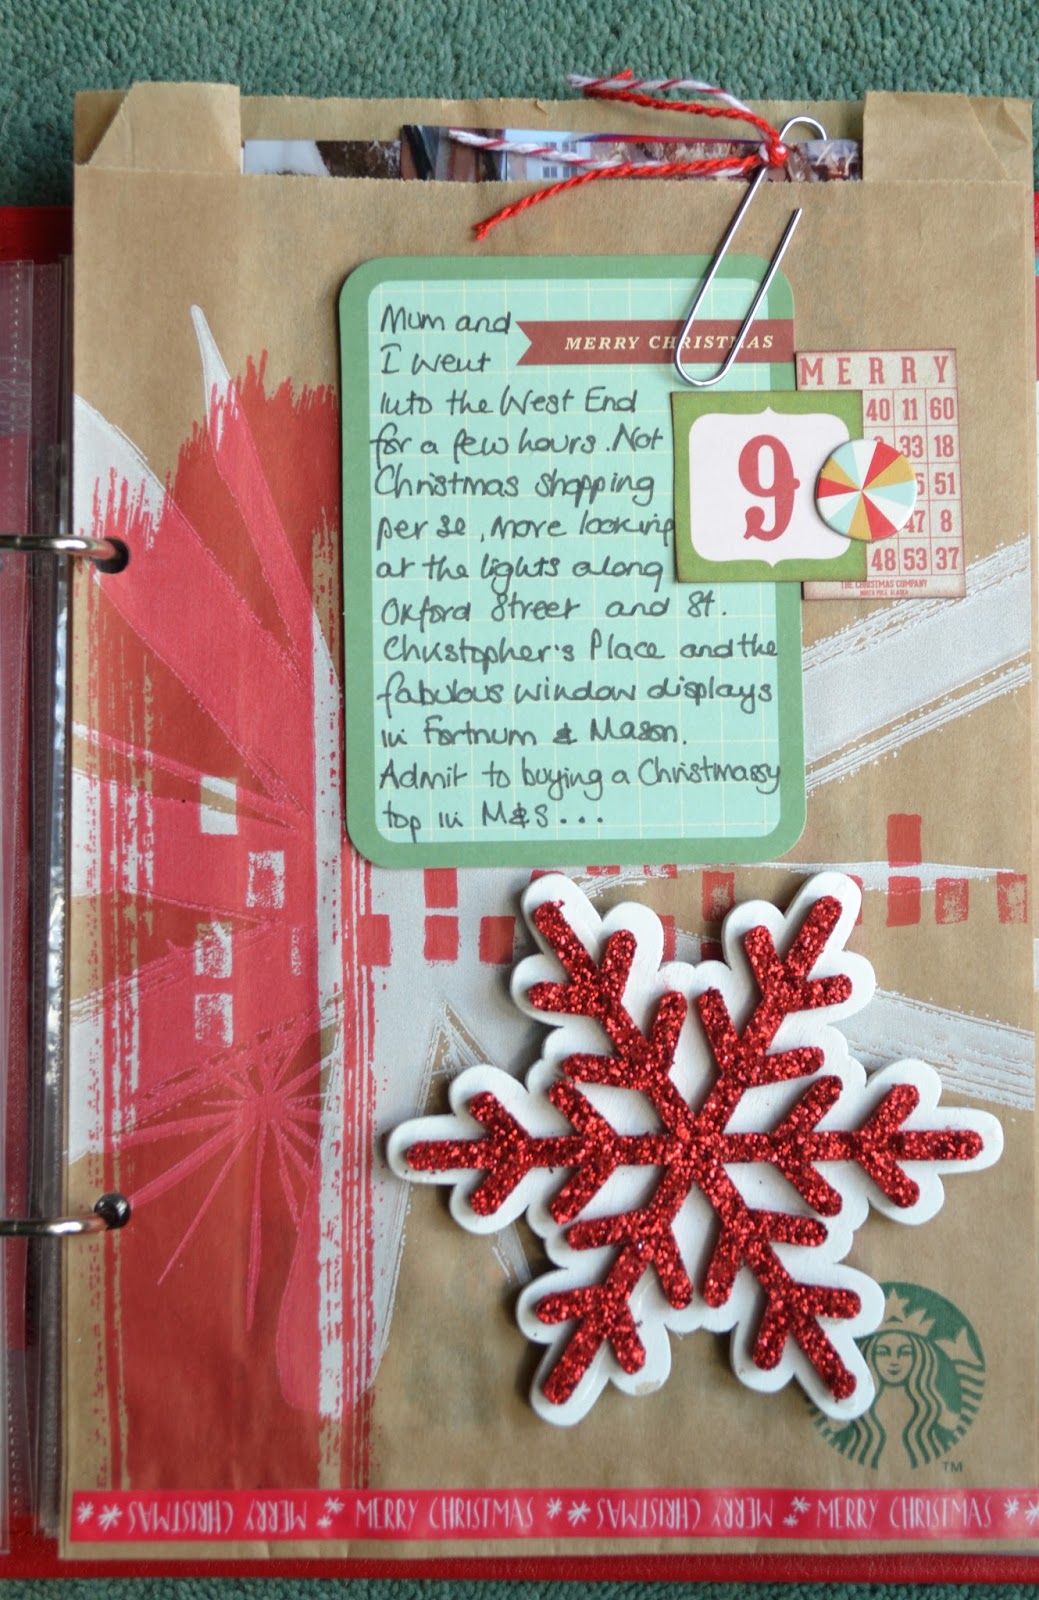 Mum and
MERRY CHRISTMAS
I went
into the West End
for a few hours. Not
Christmas shopping
per se, more looking
at the lights along
Oxford Street and St.
Christopher's Place and the
fabulous window displays
in Fortnum & Mason.
Admit to buying a Christmassy
top in M&S...
9
MERRY
40 11 60
33 18
51
47 8
48 53 37
THE CHRISTMAS COMPANY
NORTH POLE, ALASKA
TM
MERRY CHRISTMAS MERRY CHRISTMAS MERRY CHRISTMAS MERRY CHRISTMAS